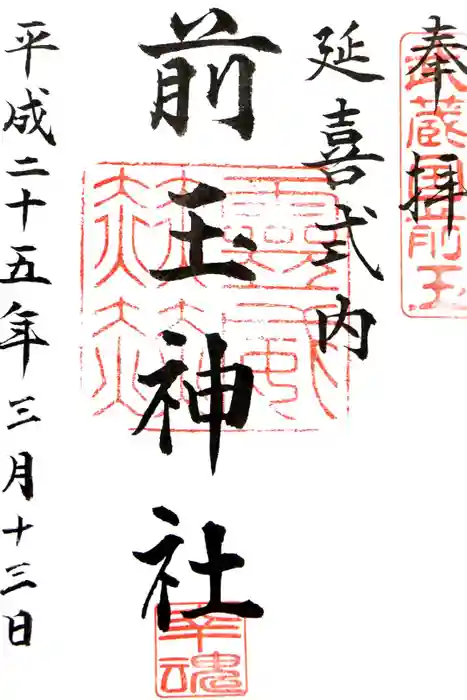 奉拝
武蔵國前玉
延喜式内
前玉神社
幸魂
平成二十五年三月十三日